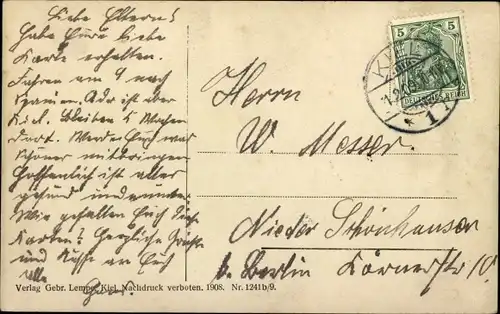 Liebe Eltern!
Habe Eure liebe
Karte erhalten.
Fahren am 9 nach
Adr ist aber
Kiel. Bleiben 4 Wochen
dort. Werde Euch was
schönes mitbringen
Hoffentlich ist alles
gesund und
Wie gefallen Euch die
Karten? Herzliche Grüße
und Küsse an Euch
Alle
Herrn
W. Messer.
Nieder Schönhausen
b. Berlin Körnerstr
5 5
DEUTSCHES REICH
KIEL
1
Verlag Gebr. Lempe, Kiel. Nachdruck verboten. 1908. Nr. 1241b/9.